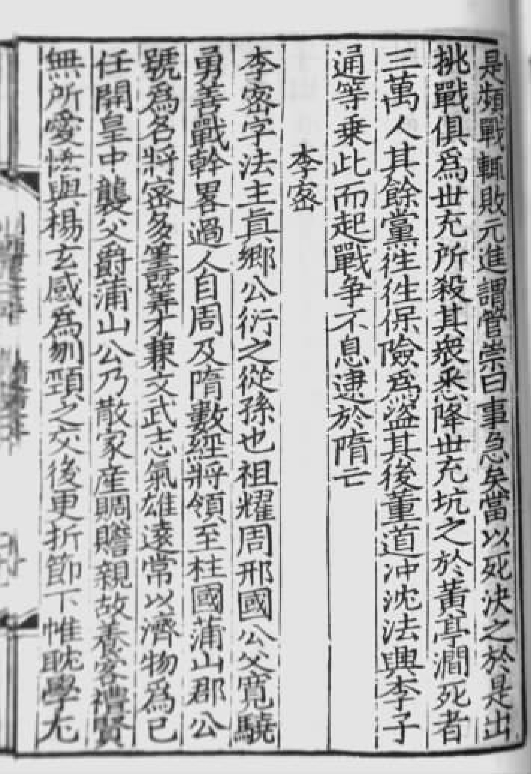 是頻戰輒敗元進謂管崇曰事急矣當以死決之於是出
挑戰俱爲世充所殺其衆悉降世充坑之於黄亭澗死者
三萬人其餘黨徃徃保險爲盗其後董道沖沈法興李子
通等乗此而起戰争不息逮於隋亡
李宻
李宻字法主真鄉公衍之從孫也祖耀周邢國公父寛驍
勇善戰幹畧過人自周及隋數經將領至柱國蒲山郡公
號爲名將宻多籌筭才兼文武志氣雄遠常以濟物爲己
任開皇中襲父爵蒲山公乃散家産賙贍親故養客禮賢
無所愛悋與楊玄感爲刎頸之交後更折節下帷耽學尤